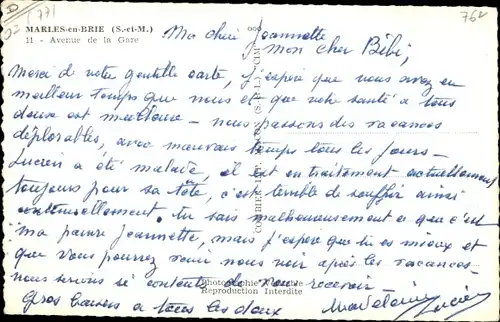 (77)
76
MARLES-en-BRIE (S.-et-M.)
11 - Avenue de la Gare
Ma chère Jeannette
Mon cher Bébi,
Merci de votre gentille carte, j'espère que vous avez eu
meilleur temps que nous et que votre santé à tous
deux est meilleure - nous passons des vacances
déplorables, avec mauvais temps tous les jours -
Lucien a été malade, il est en traitement actuellement
toujours pour sa tête, c'est terrible de souffrir ainsi
continuellement. tu sais malheureusement ce que c'est
ma pauvre Jeannette, mais j'espère que tu es mieux et
que vous pourrez venir nous voir après les vacances -
nous serions si contents de vous recevoir -
Gros baisers à tous les deux
Madeleine
Lucien
Reproduction Interdite